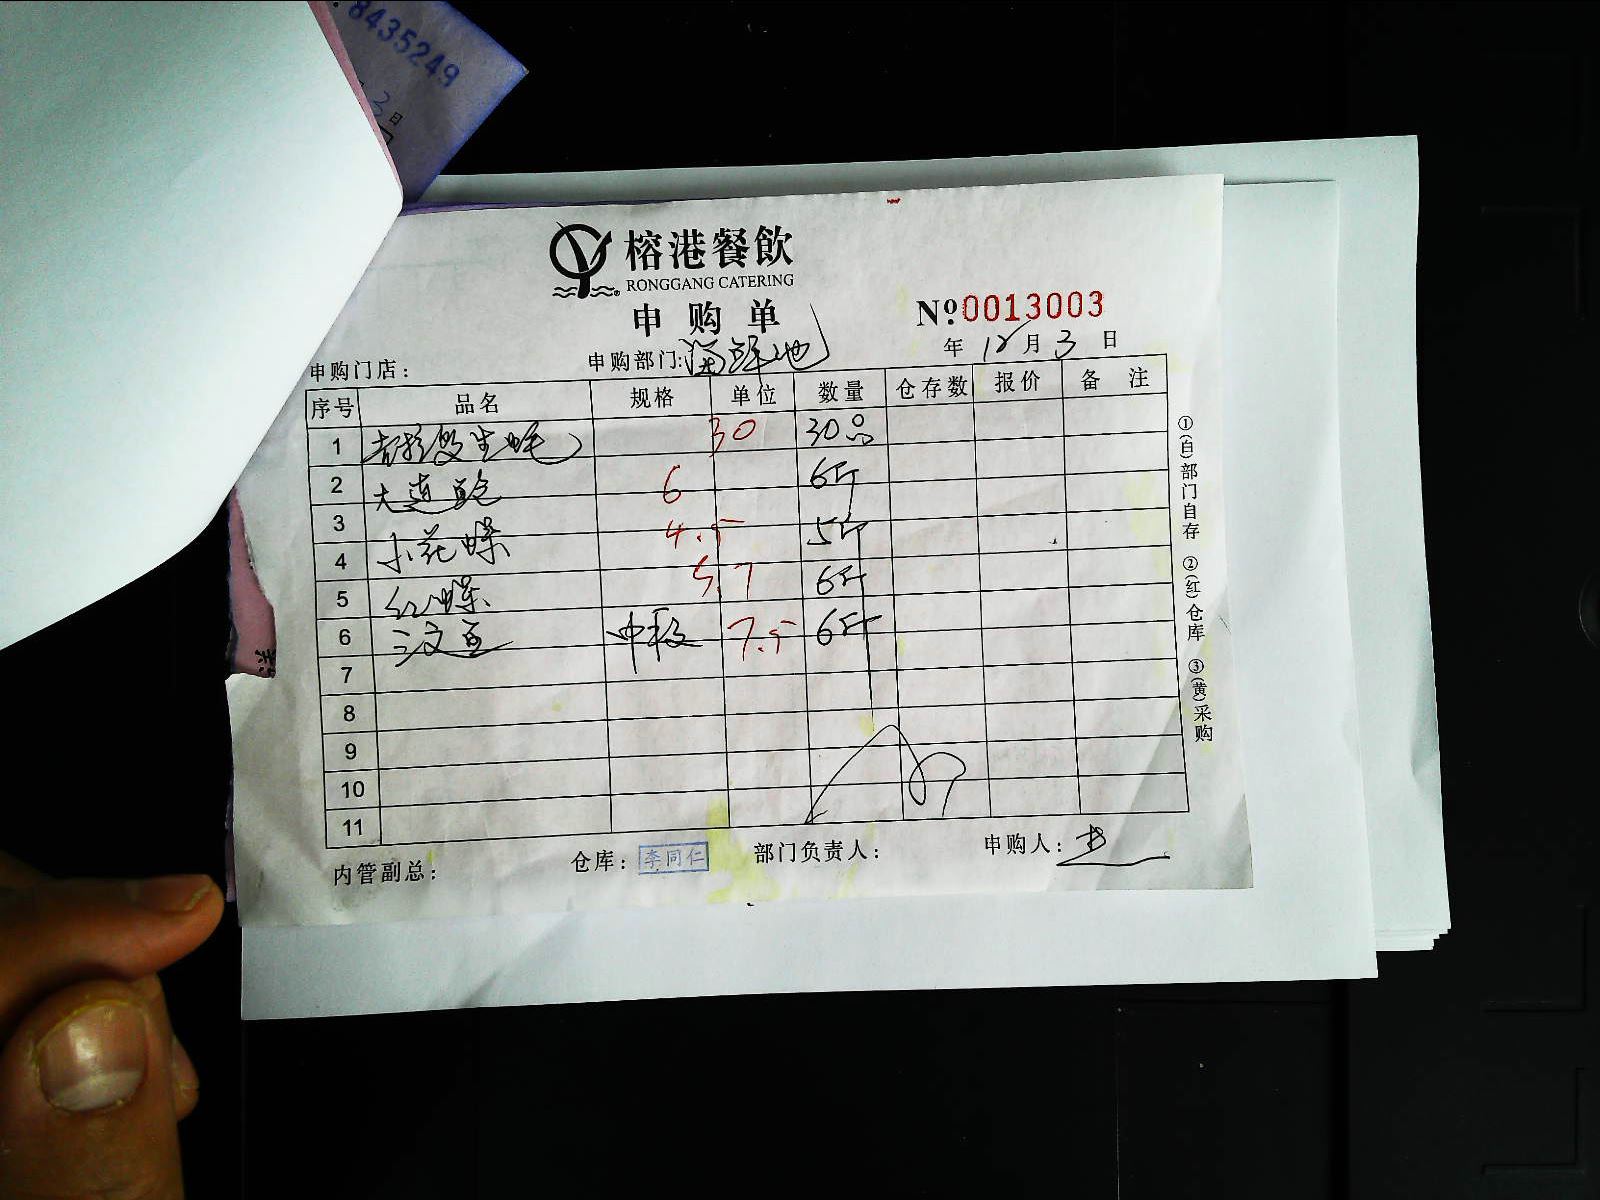 8435249
3日
榕港餐飲
RONGGANG CATERING
申购单
No.0013003
申购门店：
申购部门：海鲜池
年 12月 3 日
序号 品名 规格 单位 数量 仓存数 报价 备注
1 生蚝 30 30只
2 大连鲍 6 6斤
3 小花螺 4.5 5斤
4 红螺 5.7 6斤
5
6 中 7.5 6斤
7
8
9
10
11
①(白)部门自存 ②(红)仓库 ③(黄)采购
内管副总：
仓库：李同仁
部门负责人：
申购人：